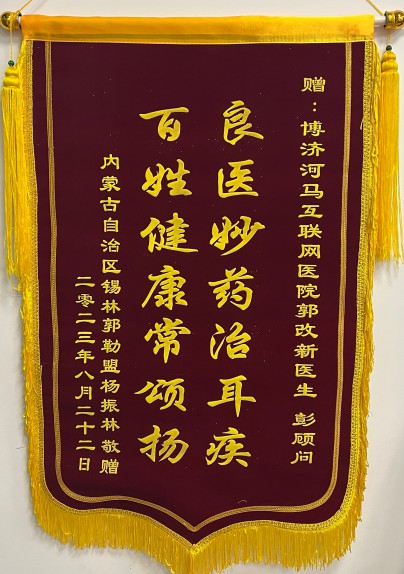 赠：博济河马互联网医院郭改新医生 彭顾问
良医妙药治耳疾
百姓健康常颂扬
内蒙古自治区锡林郭勒盟杨振林敬赠
二零二三年八月二十二日